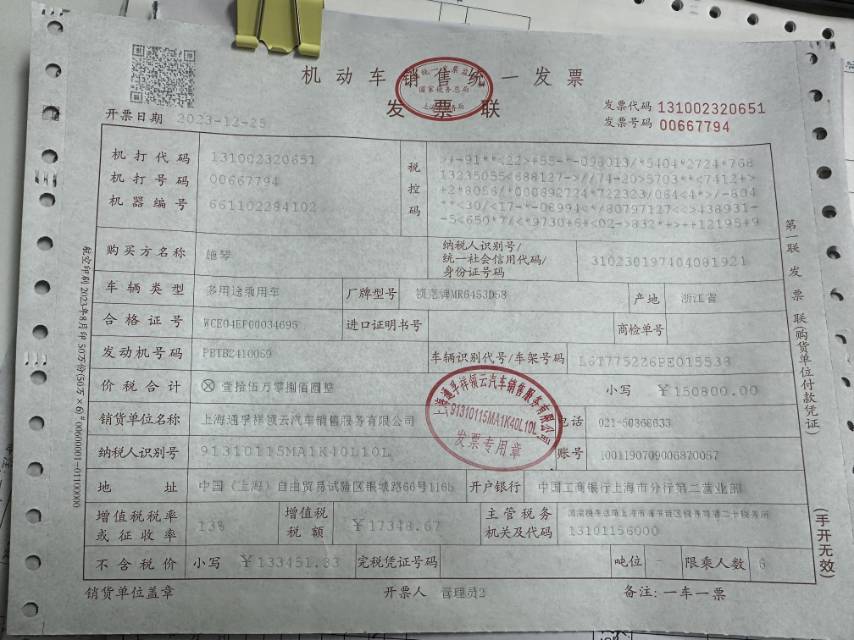 机动车销售统一发票
发票联
发票代码 131002320651
发票号码 00667794
开票日期 2023-12-25
机打代码 131002320651
机打号码 00667794
机器编号 661102284102
税控码
购买方名称 施琴
纳税人识别号/统一社会信用代码/身份证号码 310230197404081921
车辆类型 多用途乘用车 厂牌型号 产地 浙江省
合格证号 WCE04EF00034695 进口证明书号 商检单号
发动机号码 车辆识别代号/车架号码 L6T7752Z6PE015538
价税合计 ⊗壹拾伍万零捌佰圆整 小写 ¥150800.00
销货单位名称 上海通孚祥领云汽车销售服务有限公司 电话
纳税人识别号 91310115MA1K40L10L 账号 1001190709006870067
地址 中国(上海)自由贸易试验区银城路66号116b 开户银行 中国工商银行上海市分行第二营业部
增值税税率或征收率 13% 增值税税额 ¥17348.67 主管税务机关及代码 13101156000
不含税价 小写 ¥133451.33 完税凭证号码 吨位 - 限乘人数
销货单位盖章 开票人 管理员2 备注:一车一票
第一联 发票联(购货单位付款凭证)
(手开无效)
上海通孚祥领云汽车销售服务有限公司
91310115MA1K40L10L
发票专用章
国家税务总局